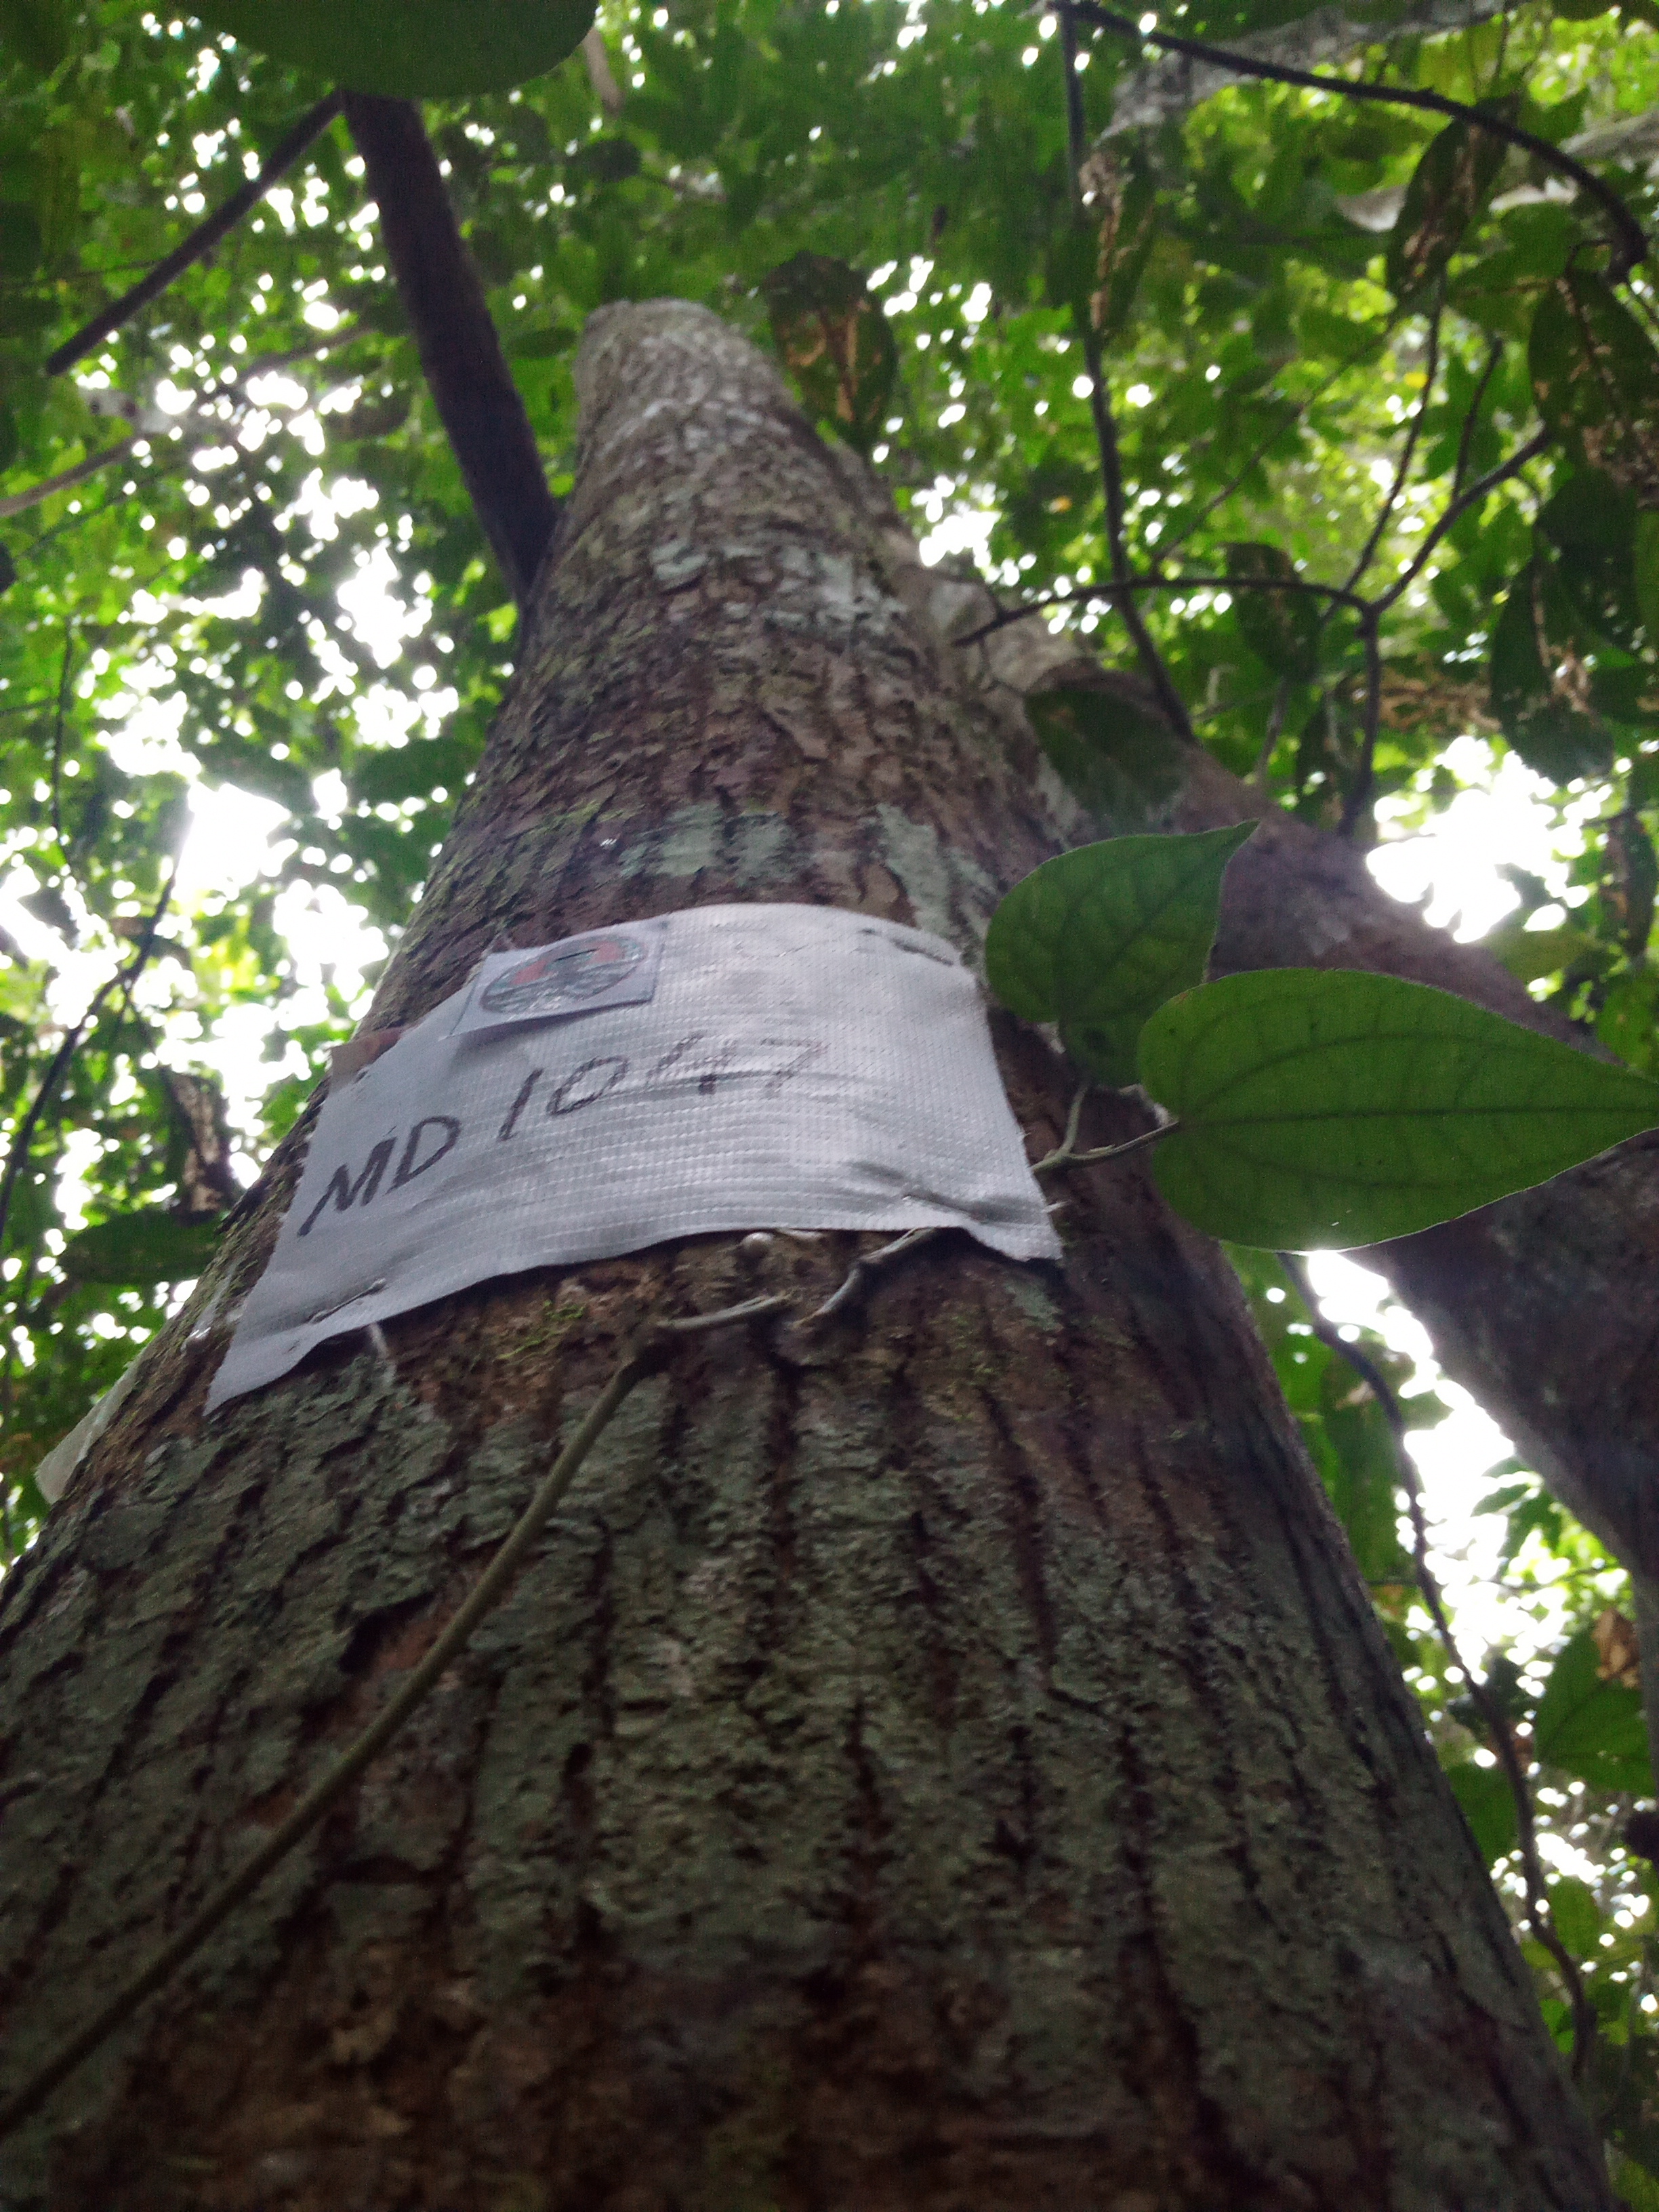 MD 1047